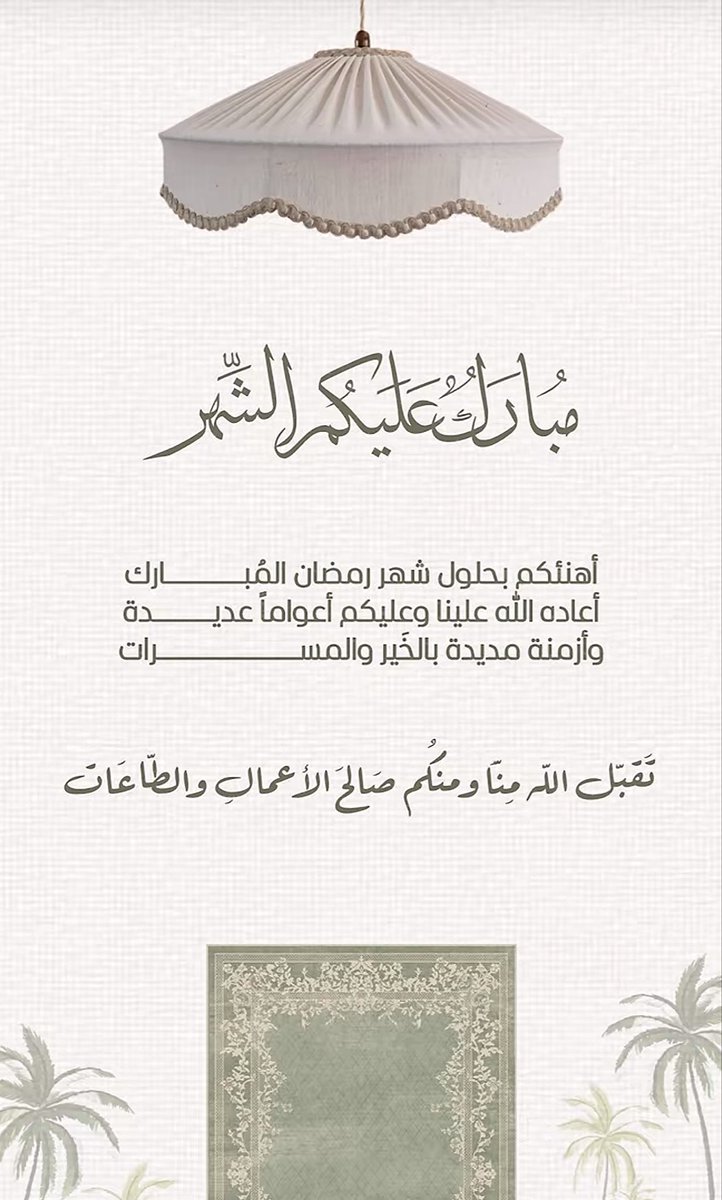 مُبارَكٌ عَليكُم الشَّهر
أهنئكم بحلول شهر رمضان المُبـــــارك
أعاده الله علينا وعليكم أعواماً عديـــــدة
وأزمنة مديدة بالخَير والمســـــــرات
تَقبّل اللّه مِنّا ومنكُم صَالحَ الأعمالِ والطّاعَات